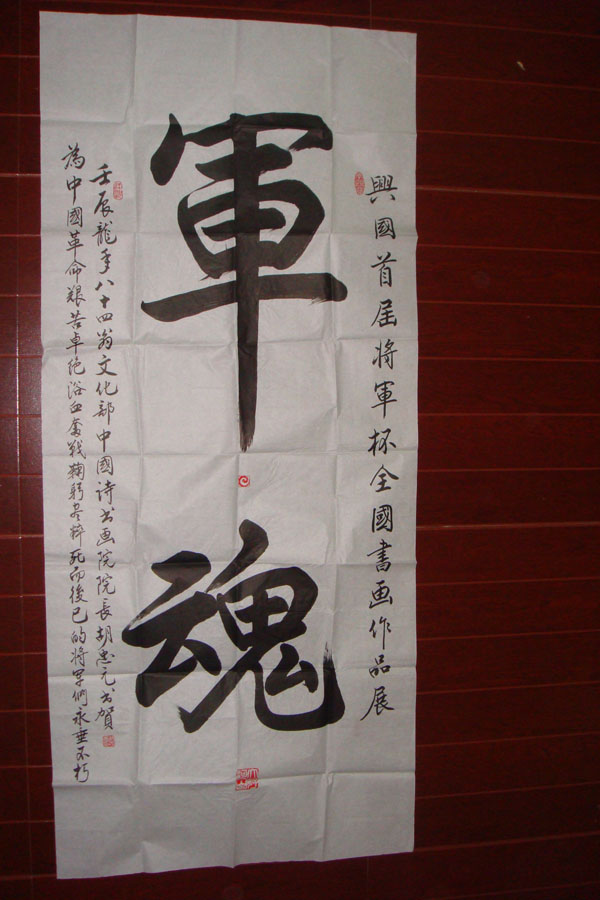 興國首屆將軍杯全國書画作品展
軍魂
壬辰龍年八十四翁文化部中國诗书画院院長胡忠元书贺
為中國革命艰苦卓绝浴血奮戰鞠躬尽粹死而後已的將军们永垂不朽